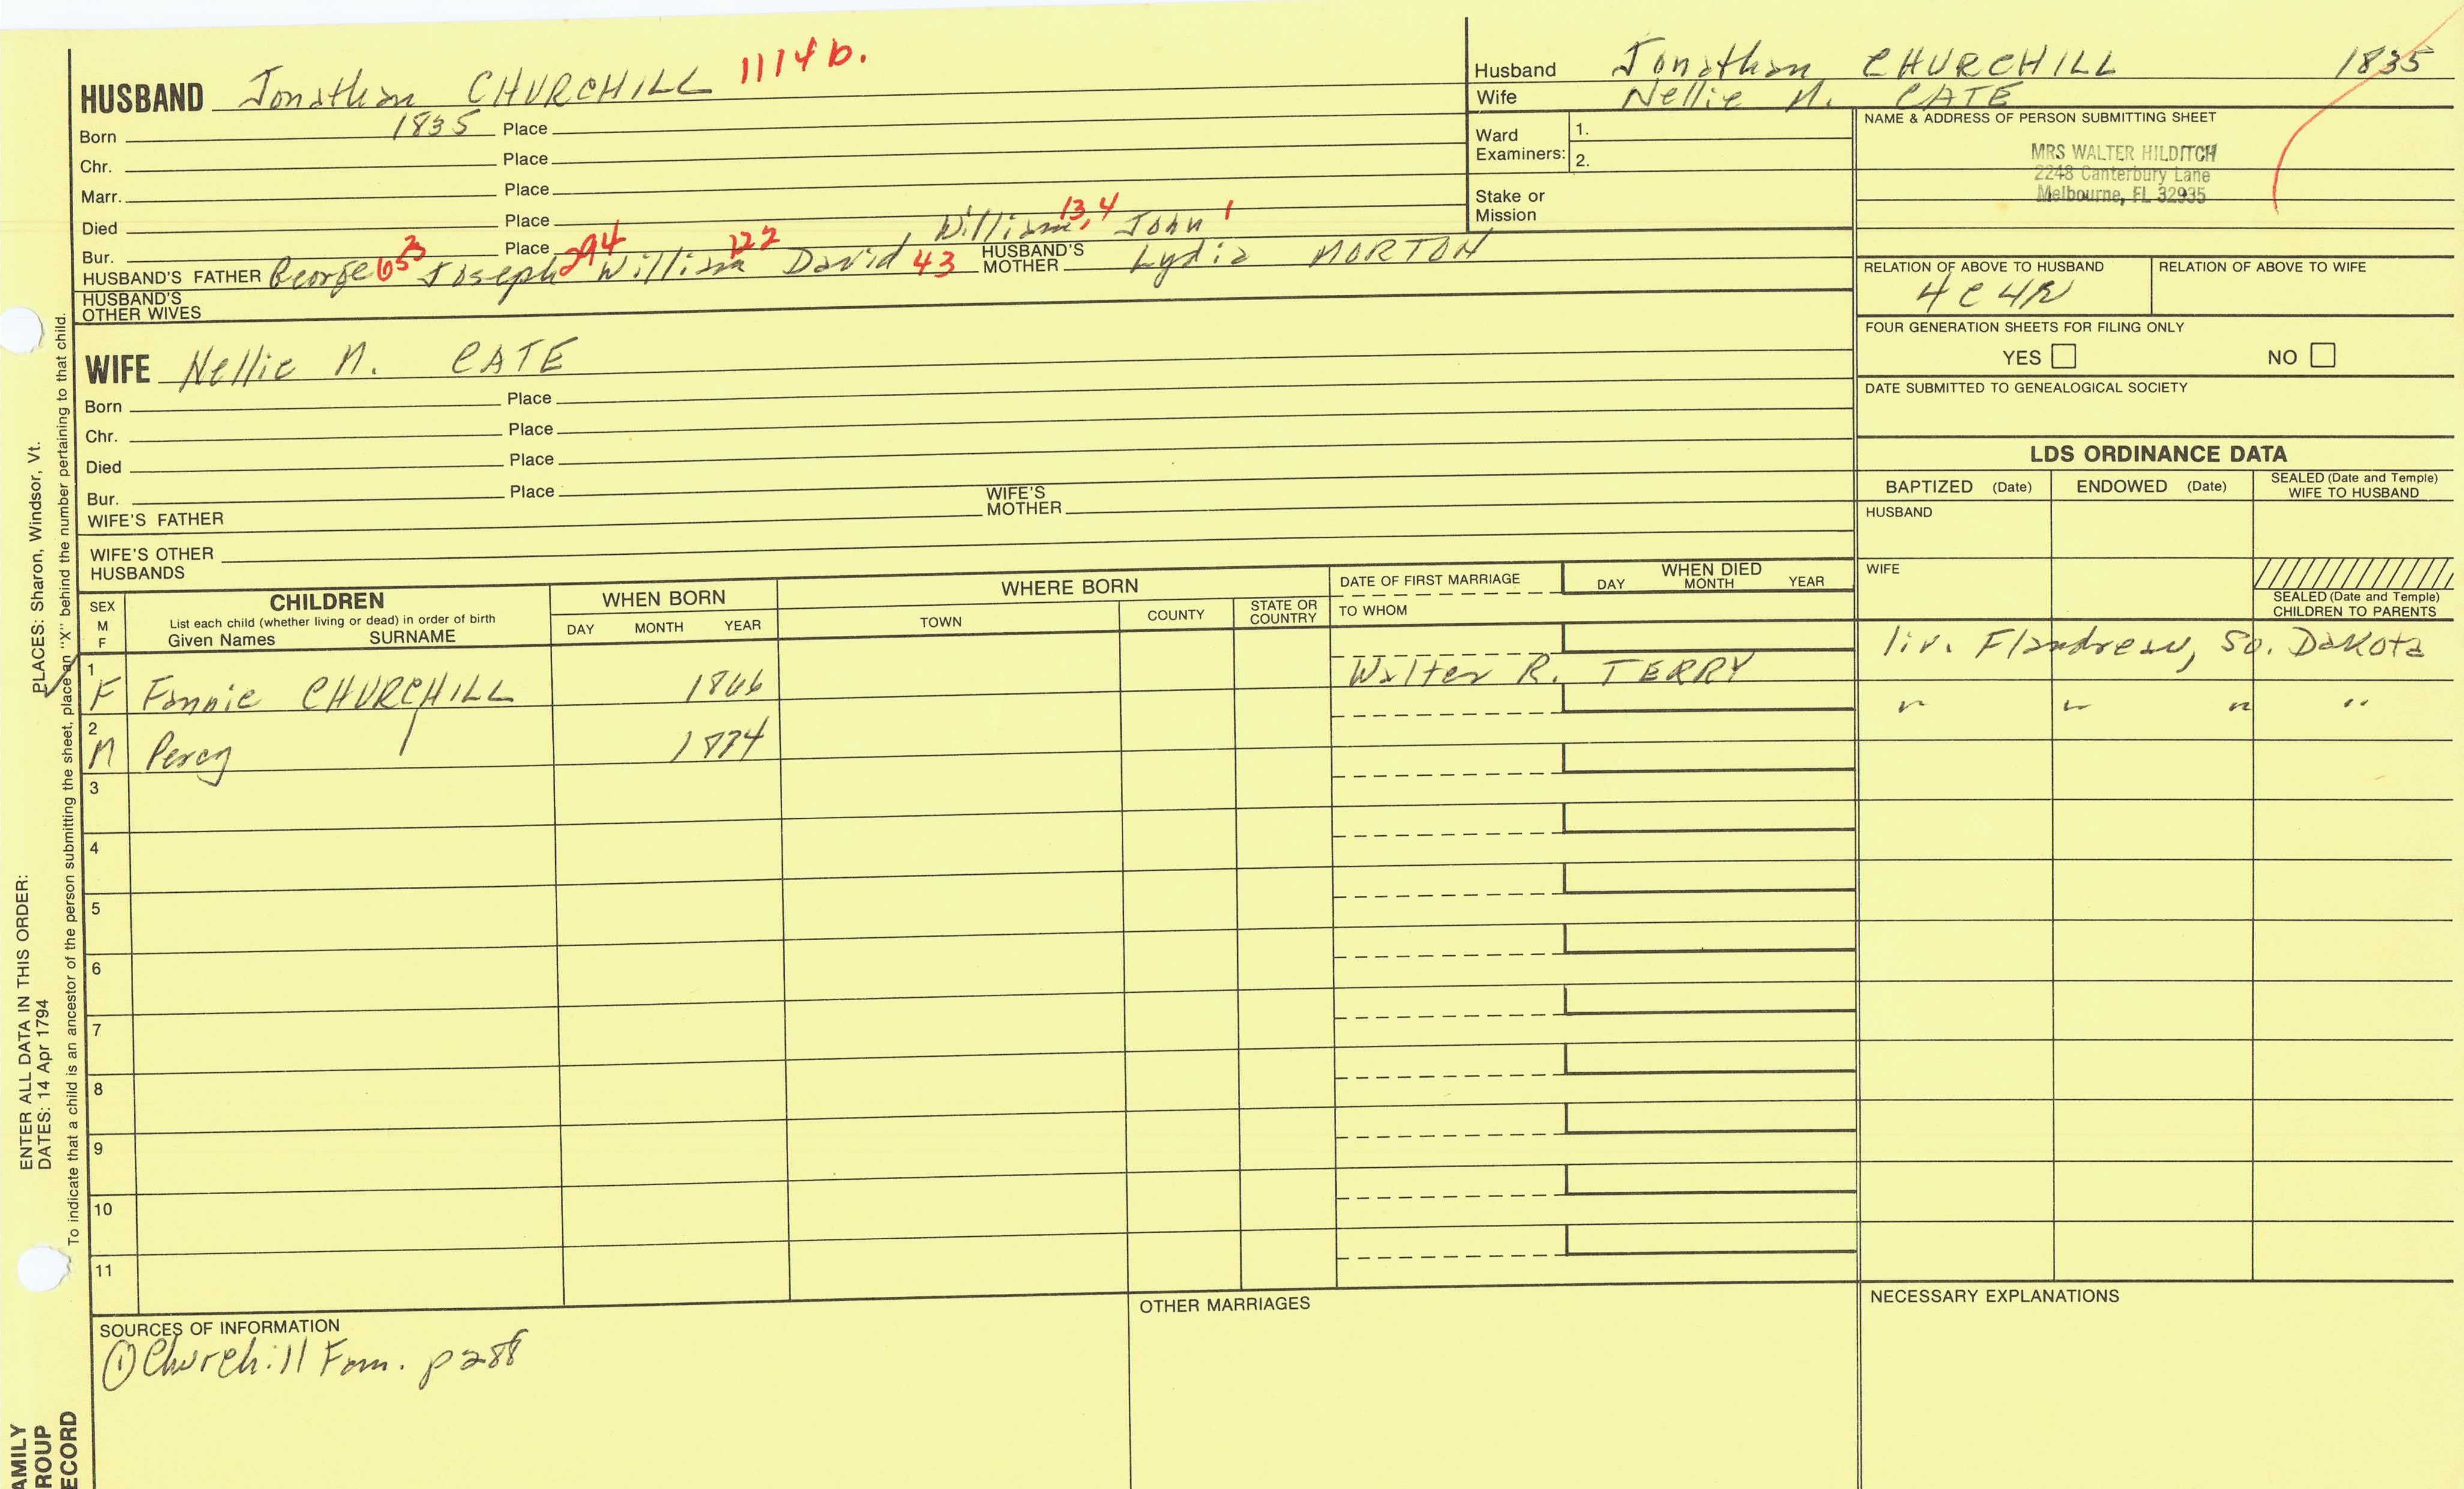 HUSBAND Jonathan CHURCHILL 1114 b.
Born 1835 Place
Chr. Place
Marr. Place
Died Place
William 13, 4 John 1
Bur. Place
HUSBAND'S FATHER George 653 Joseph 294 William 122 David 43 HUSBAND'S MOTHER Lydia MORTON
HUSBAND'S
OTHER WIVES
Husband Jonathan CHURCHILL 1835
Wife Nellie M. CATE
Ward
Examiners: 1.
2.
Stake or
Mission
NAME & ADDRESS OF PERSON SUBMITTING SHEET
MRS WALTER HILDITCH
2248 Canterbury Lane
Melbourne, FL 32935
RELATION OF ABOVE TO HUSBAND RELATION OF ABOVE TO WIFE
4C4R
FOUR GENERATION SHEETS FOR FILING ONLY
YES NO
DATE SUBMITTED TO GENEALOGICAL SOCIETY
WIFE Nellie M. CATE
Born Place
Chr. Place
Died Place
Bur. Place
WIFE'S FATHER WIFE'S MOTHER
WIFE'S OTHER
HUSBANDS
LDS ORDINANCE DATA
BAPTIZED (Date) ENDOWED (Date) SEALED (Date and Temple)
WIFE TO HUSBAND
HUSBAND
WIFE
SEALED (Date and Temple)
CHILDREN TO PARENTS
SEX
M
F
CHILDREN
List each child (whether living or dead) in order of birth
Given Names SURNAME
WHEN BORN
DAY MONTH YEAR
WHERE BORN
TOWN COUNTY STATE OR
COUNTRY
DATE OF FIRST MARRIAGE
TO WHOM
WHEN DIED
DAY MONTH YEAR
1 F Fannie CHURCHILL 1866 Walter R. TERRY liv. Flandreau, So. Dakota
2 M Percy 1874 " " " "
3
4
5
6
7
8
9
10
11
SOURCES OF INFORMATION
① Churchill Fam. p 288
OTHER MARRIAGES
NECESSARY EXPLANATIONS
ENTER ALL DATA IN THIS ORDER:
DATES: 14 Apr 1794 PLACES: Sharon, Windsor, Vt.
To indicate that a child is an ancestor of the person submitting the sheet, place an "X" behind the number pertaining to that child.
AMILY
ROUP
ECORD